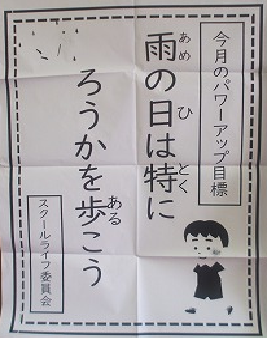 今月のパワーアップ目標
雨の日は特に
あめ ひ とく
ろうかを歩こう
ある
スクールライフ委員会